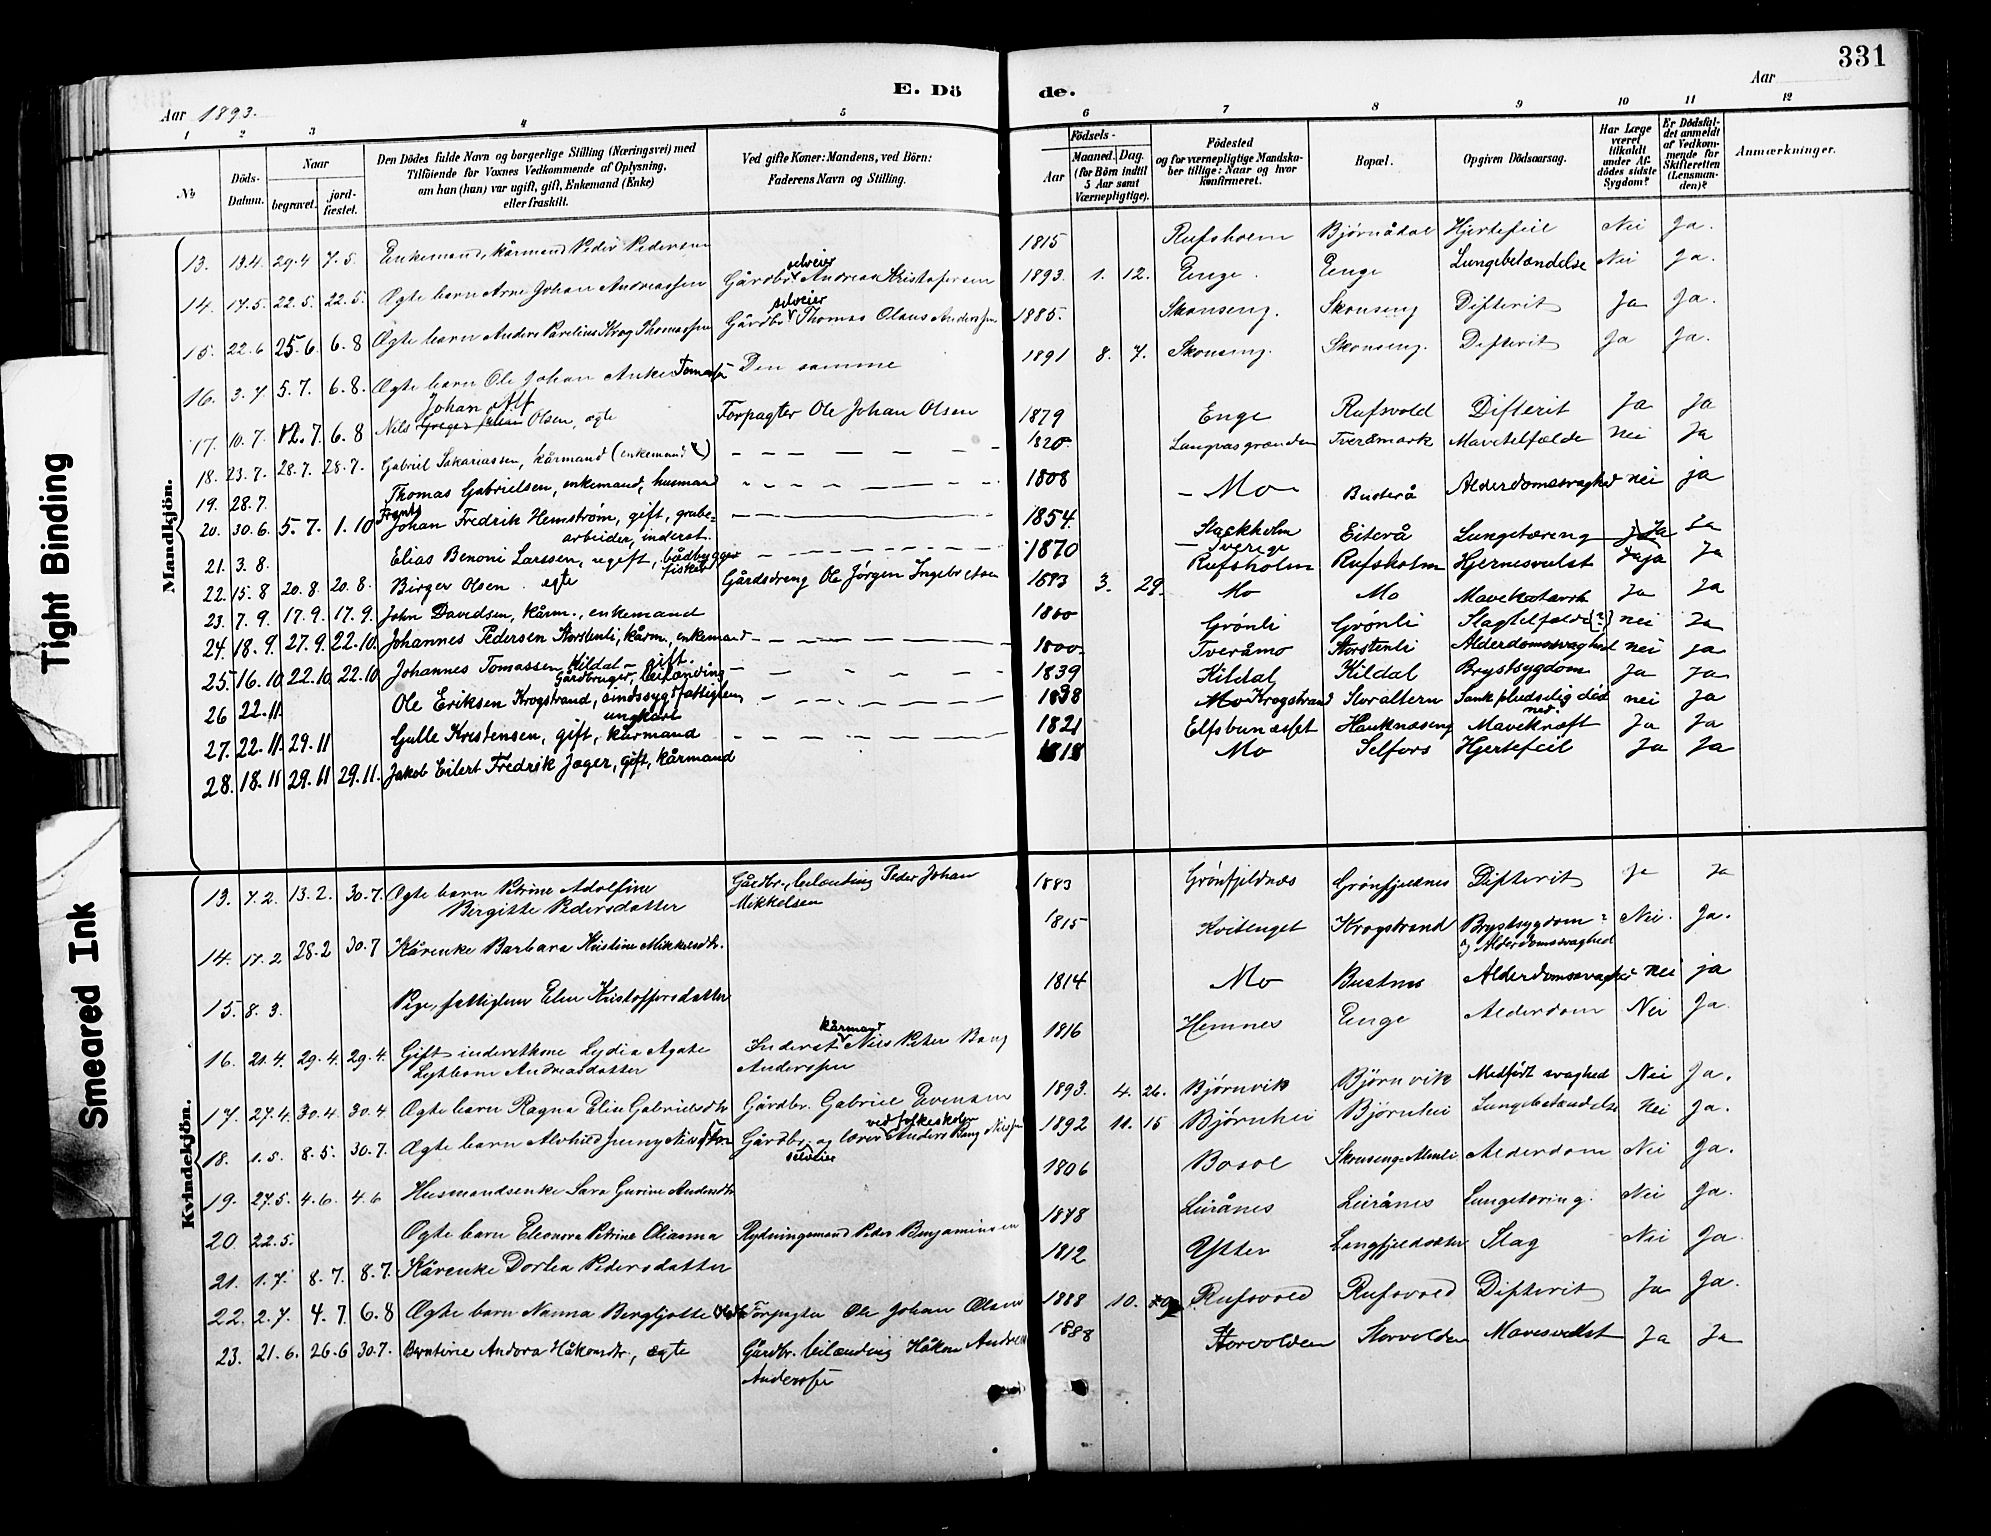 331
E. Dö de.
Aar 1893.
Aar
1 2 3 4 5 6 7 8 9 10 11 12
No
Döds-Datum.
Naar
begravet.
jord-fæstet.
Den Dödes fulde Navn og borgerlige Stilling (Næringsvei) med
Tilföiende for Voxnes Vedkommende af Oplysning,
om han (hun) var ugift, gift, Enkemand (Enke)
eller fraskilt.
Ved gifte Koner: Mandens, ved Börn:
Faderens Navn og Stilling.
Födsels-
Aar
Maaned. Dag.
(for Börn indtil
5 Aar samt
Værnepligtige).
Födested
og for værnepligtige Mandska-
ber tillige: Naar og hvor
konfirmeret.
Bopæl.
Opgiven Dödsaarsag.
Har Læge
været
tilkaldt
under Af-
dödes sidste
Sygdom?
Er Dödsfal-
det anmeldt
af Vedkom-
mende for
Skifteretten
(Lensman-
den)?
Anmærkninger.
Mandkjön.
13. 13.4. 29.4 7.5. Enkemand, kårmand Peder Pedersen 1815 Rufsholm Bjørnådal Hjertefeil Nei Ja.
14. 17.5. 22.5. 22.5. Ægte barn Arne Johan Andreassen Gårdbr. selveier Andreas Kristofersen 1893. 1. 12. Enge. Enge Lungebetændelse Nei Ja.
15. 22.6 25.6. 6.8 Ægte barn Anders Parelius Krog Thomassen Gårdbr. selveier Thomas Olaus Anderssen 1885. Skonseng. Skonseng Difterit Ja Ja.
16. 3.7 5.7. 6.8. Ægte barn Ole Johan Anker Den samme 1891 8. 7. Skonseng. Skonseng. Difterit Ja Ja.
17. 10.7. 12.7. 6.8 Nils Johan Alf Olsen, ægte Forpagter Ole Johan Olsen 1879 Enge Rufsvold Difterit Ja Ja
18. 23.7. 28.7. 28.7. Gabriel Sakariassen, kårmand (enkemand?) 1820. Langvasgrænden Tveråmark Mavetilfælde nei Ja
19. 28.7. Thomas Gabrielsen, enkemand, husmand 1808 Mo Busterå Alderdomssvaghed nei ja
20. 30.6. 5.7. 1.10 Frants Johan Fredrik Hemstrøm, gift, grube-
arbeider, inderst. 1854. Stockholm
Sverige Eiterå Lungetæring Ja Ja
21. 3.8. Elias Benoni Larssen, ugift, bådbygger
fisker 1870 Rufsholm Rufsholm Hjernesvulst ja Ja
22. 15.8 20.8. 20.8. Birger Olsen. ægte Gårdsdreng Ole Jørgen Ingebretsen 1893 3. 29. Mo Mo Mavekatarrh Ja Ja
23. 7.9. 17.9. 17.9. John Davidsen, kårm., enkemand Grønli Grønli Slagtilfælde (?) nei Ja
24. 18.9. 27.9. 22.10. Johannes Pedersen Storstenli, kårm, enkemand 1800. Tveråmo Storstenli Alderdomssvaghed nei ja
25. 16.10 22.10 22.10 Johannes Tomassen Kildal – gift.
Gårdbruger, leilænding 1839 Kildal Kildal Brystsygdom Ja Ja
26 22.11. Ole Eriksen Krogstrand, sindssyg fattiglem
ungkarl 1838 Mo Krogstrand Storaltern Sank pludselig død
ned. nei Ja
27. 22.11. 29.11 Gulle Kristensen, gift, kårmand 1821 Hauknæseng Mavekræft Ja Ja
28. 18.11 29.11 29.11. Jakob Eilert Fredrik Jæger, gift, kårmand 1818 Mo Selfors Hjertefeil Ja Ja
Kvindekjön.
13. 7.2. 13.2. 30.7. Ægte barn Petrine Adolfine
Birgitte Pedersdatter Gårdbr., leilænding Peder Johan
Mikkelsen 1883 Grønfjeldnæs Grønfjeldnes Difterit Ja Ja
14. 17.2 28.2 30.7 Kårenke Barbara Kristine Mikkelsdtr. 1815 Kvitenget Krogstrand Brystsygdom
og Alderdomssvaghed Nei. Ja.
15. 8.3. Pige, fattiglem Elen Kristoffersdatter 1814 Mo Bustnes Alderdomssvaghed nei ja
16. 21.4. 29.4. 29.4. Gift inderstkone Lydia Agate
Andreasdatter Inderst kårmand Nils Peter Bang
Anderssen 1816 Hemnes Enge Alderdom Nei Ja.
17. 27.4. 30.4. 30.4. Ægte barn Ragna Elen Gabrielsdtr Gårdbr. Gabriel Evensen 1893. 4. 26. Bjørnvik Bjørnvik Medfødt svaghed Nei Ja.
18. 1.5. 8.5. 30.7. Ægte barn Alvhild Jenny Gårdbr. selveier og lærer ved folkeskolen Anders Bang Nilssen 1892 11. 15 Bjørnhei Bjørnhei Lungebetændelse Nei Ja.
19. 27.5. 4.6. 4.6 Husmandsenke Sara Gurine Andersdtr 1806 Bosol Skonseng Almli Alderdom Nei Ja.
20. 22.5. Ægte barn Eleonora Petrine Oliasma Rydningsmand Peder Benjaminsen 1878 Leirånes Leirånes Lungetæring. Nei Ja.
21. 1.7. 8.7. 8.7. Kårenke Dortea Pedersdatter 1812 Ytter Langfjeldsæter Slag Nei Ja.
22. 2.7. 4.7 6.8 Ægte barn Nanna Bergljotte Forpagter Ole Johan Olsen 1888 10. Rufsvold Rufsvold Difterit Ja Ja.
23. 21.6. 26.6 30.7. Berntine Andora Håkonsdtr., ægte Gårdbr. leilænding Håkon Andreas
Anderssen 1888 Storvolden Storvolden Mavesvulst Ja Ja
Tight Binding
Smeared Ink